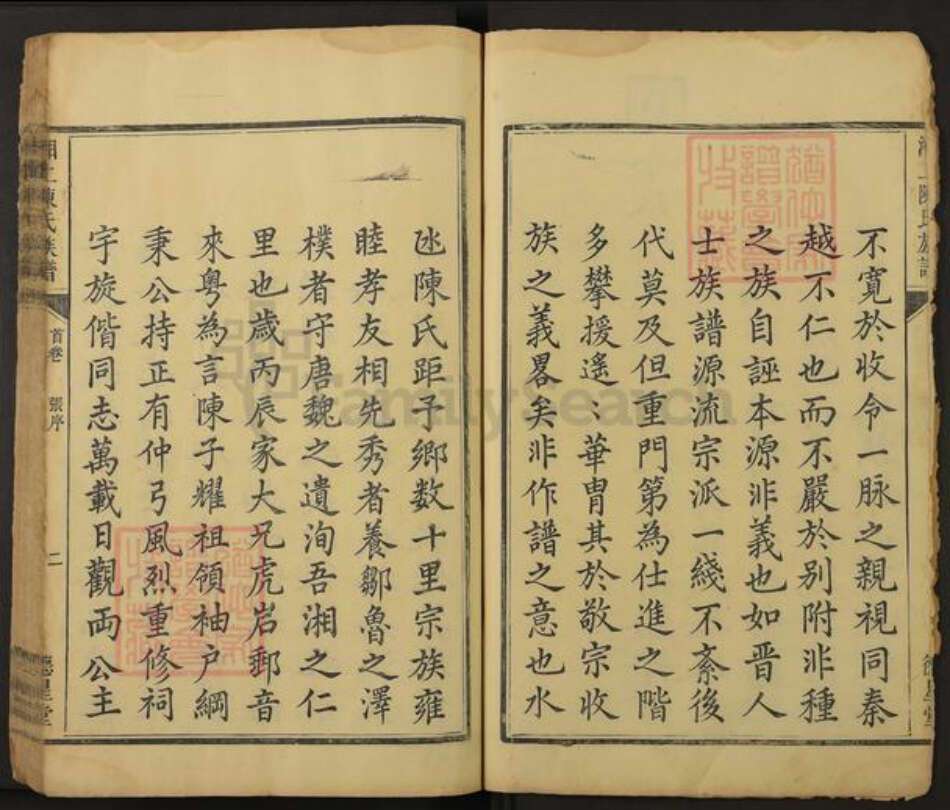 不寬於收令一脉之親視同秦
越不仁也而不嚴於別附非種
之族自誣本源非義也如晋人
士族譜源流宗派一綫不紊後
代莫及但重門第為仕進之階
多攀援遥〻華冑其於敬宗收
族之義畧矣非作譜之意也水
氹陳氏距子鄉数十里宗族雍
睦孝友相先秀者養鄒魯之澤
樸者守唐魏之遺洵吾湘之仁
里也歲丙辰家大兄虎岩郵音
來粵為言陳子耀祖領袖户綱
秉公持正有仲弓風烈重修祠
宇旋偕同志萬載日觀両 公主
湘上陳氏族譜
首卷 張序
二
德星堂
FamilySearch